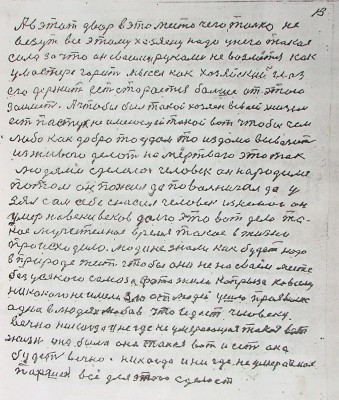 13
А в этот двор в это место чего только не
везут все этому хозяину надо у него такая
сила за что он своими руками не возмётся как
у мастера горит мысля как хозяйский глаз
его держит ест старается больше от этого
заимет. А чтобы был такой хозяен в своей жизни
ест пастух не имеющей такой вот чтобы чем
либо как добро то удом то ездомо вывозит
из живого делот но мёртвого это так
людями сделано человек он народился
потом он пожил да поволничал да у
зял сам себе скосил человек изконно он
умер на веки веков долго это вот дело та-
кое мучительное время такое в жизни
происходило. Люди не знали как будет надо
в природе жет чтобы они не на своём месте
без усякого самоза
никакого не имело зло от людей ушло
одна в людях любов что едает человеку.
Вечно никогда и негде не умирающая такая вот
жизн она была она такая вот и ест она
будет вечно. никогда и ни где не умераемая
все для этого сделает